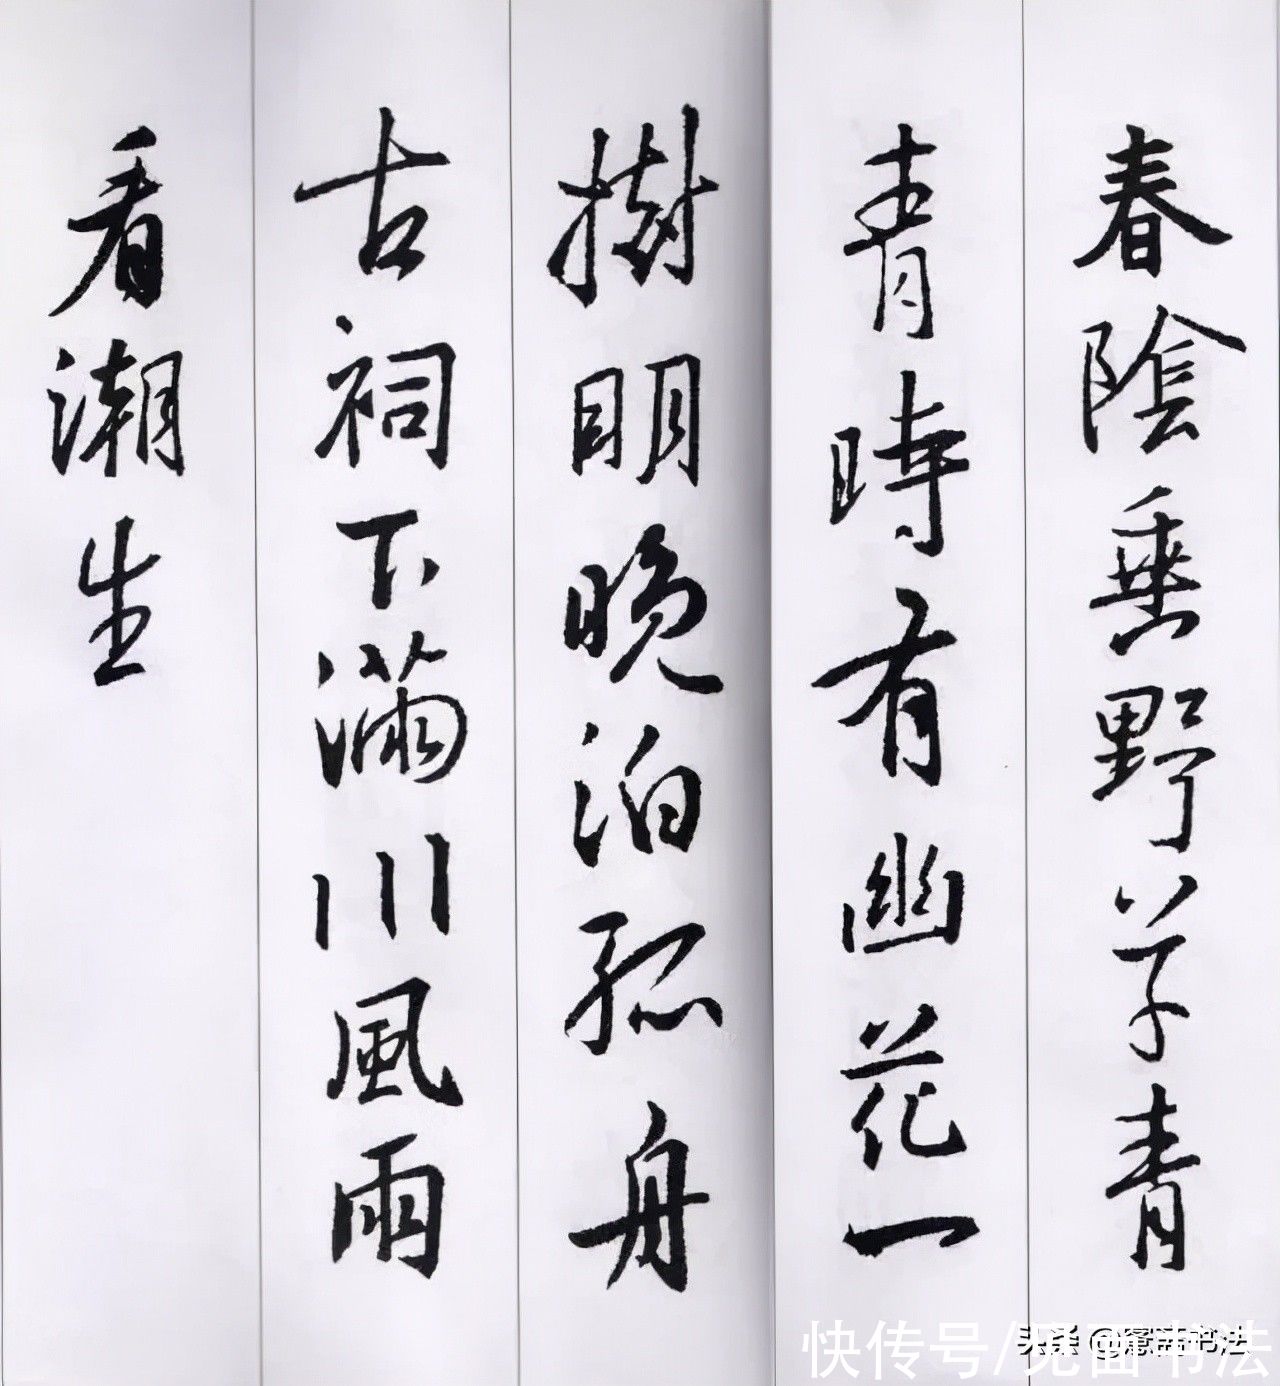 春陰垂野草青
青時有幽花一
樹明晚泊孤舟
古祠下滿川風雨
看潮生
快传号/见面书法
头条 @
书法